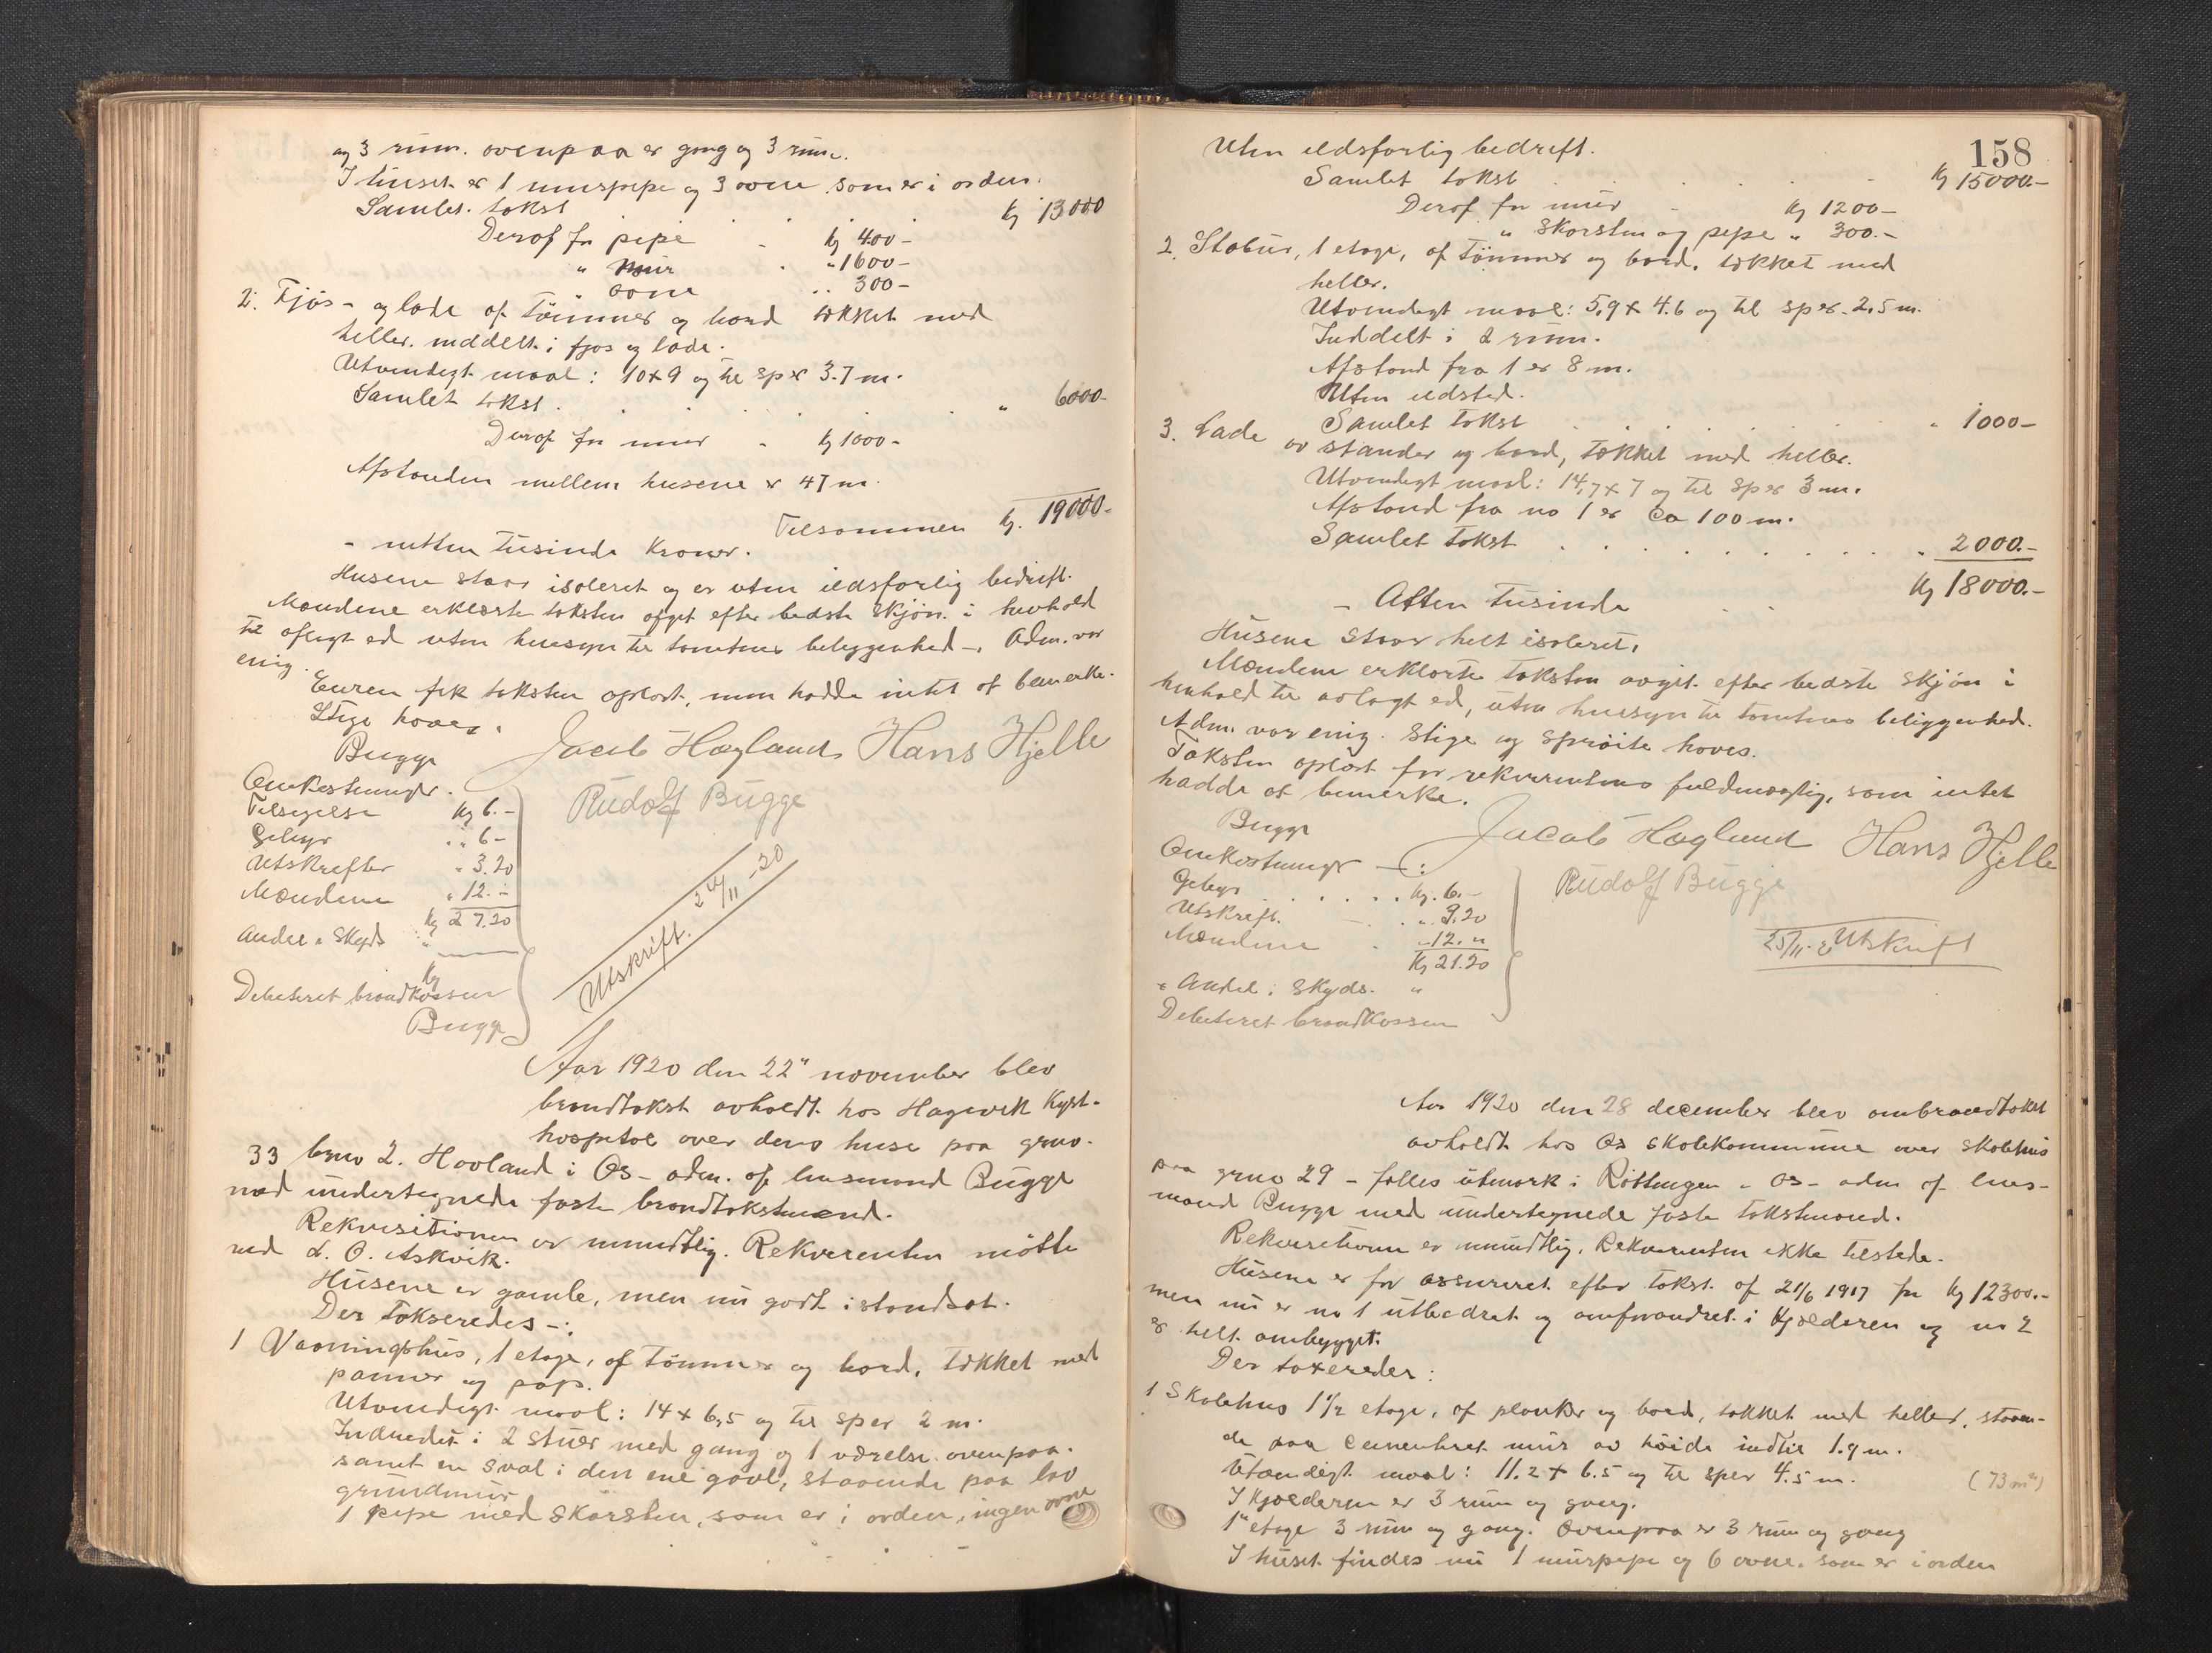 og 3 rum. ovenpaa er gang og 3 rum.
I huset er 1 murspipe og 3 ovne som er i orden.
Samlet takst Kr 13000
Derav for pipe Kr 400-
" mur " 1600-
" ovne " 300-
2. Fjøs- og lade af tømmer og bord tækket med
heller. inddelt i fjøs og lade.
Utvendigt maal: 10x9 og til sper 3.7 m.
Samlet takst " 6000-
Deraf for mur Kr 1000-
Afstanden mellem husene er 47 m.
Tilsammen Kr. 19000-
- nitten tusinde Kroner.
Husene staar isoleret og er uten ildsfarlig bedrift.
Mændene erklærte taksten afgit efter bedste skjøn i henhold
til aflagt ed uten hensyn til tomtens beliggenhed -. Adm. var
enig.
Eieren fik taksten oplæst, men hadde intet at bemerke.
Stige haves.
Bugge Jacob Hægland Hans Hjelle
Rudolf Bugge
Omkostninger.
Tilsigelse Kr 6.-
Gebyr " 6-
Utskrifter " 3.20
Mændene " 12.-
Kr 27.20
Andel i Skyds "
Kr
Debiteret brandkassen
Bugge
Utskrift. 24/11-20
Aar 1920 den 22" november blev
brandtakst avholdt hos Hagevik Kyst-
hospital over dens huse paa grno.
33 brno 2. Hovland i Os - adm. af lensmand Bugge
med undertegnede faste brandtakstmænd.
Rekvisitionen er mundtlig. Rekvirenten møtte
ved L. O. Askvik.
Husene er gamle, men nu godt istandsat.
Der takseredes -:
1 Vaaningshus, 1 etage, af tømmer og bord, tækket med
panner og pap.
Utvendigt maal: 14 x 6,5 og til sper 2 m.
Indredet i 2 stuer med gang og 1 værelse ovenpaa.
samt en sval i den ene gavl, staaende paa lav
grundmur
1 pipe med skorsten, som er i orden, ingen ovne
158
Uten ildsfarlig bedrift.
Samlet takst Kr 15000.-
Deraf for mur Kr 1200-
" skorsten og pipe " 300.-
2. Stabur, 1 etage, af tømmer og bord, tækket med
heller.
Utvendigt maal: 5,9 x 4.6 og til sper 2,5 m.
Inddelt i 2 rum.
Afstand fra 1 er 8 m.
Uten ildsted.
Samlet takst " 1000-
3. Lade av stander og bord, tækket med heller.
Utvendigt maal: 14,7 x 7 og til sper 3 m.
Afstand fra no 1 er ca 100 m.
Samlet takst " 2000.-
Kr 18000.-
- Atten tusinde
Husene staar helt isoleret.
Mændene erklærte taksten avgit efter bedste skjøn i
henhold til avlagt ed, uten hensyn til tomtens beliggenhed.
Adm. var enig. Stige og sprøite haves.
Taksten oplæst for rekvirentens fuldmægtig, som intet
hadde at bemerke.
Bugge Jacob Hægland Hans Hjelle
Rudolf Bugge
Omkostninger -:
Gebyr Kr. 6.-
Utskrift. " 3.20
Mændene " 12. "
Kr 21.20
" Andel i Skyds. "
Debiteret brandkassen
25/11- Utskrift
Aar 1920 den 28 december blev ombrandtakst
avholdt hos Os skolekommune over skolehus
paa grno 29 - fælles utmark i Røttingen - Os - adm af lens-
mand Bugge med undertegnede faste takstmænd.
Rekvisitionen er mundtlig. Rekvirenten ikke tilstede.
Husene er før assureret efter takst af 21/6 1917 for Kr 12300.-
men nu er no 1 utbedret og omforandret i kjælderen og no 2
er helt ombygget.
Der taxeredes:
1 Skolehus 1 1/2 etage, af planker og bord, tækket med heller, staaen-
de paa cementeret mur av høide indtil 1.9 m.
Utvendigt maal: 11.2 x 6.5 og til sper 4.5 m. (73 m²)
I kjælderen er 3 rum og gang.
1" etage 3 rum og gang. Ovenpaa er 3 rum og gang
I huset findes nu 1 murspipe og 6 ovne. som er i orden